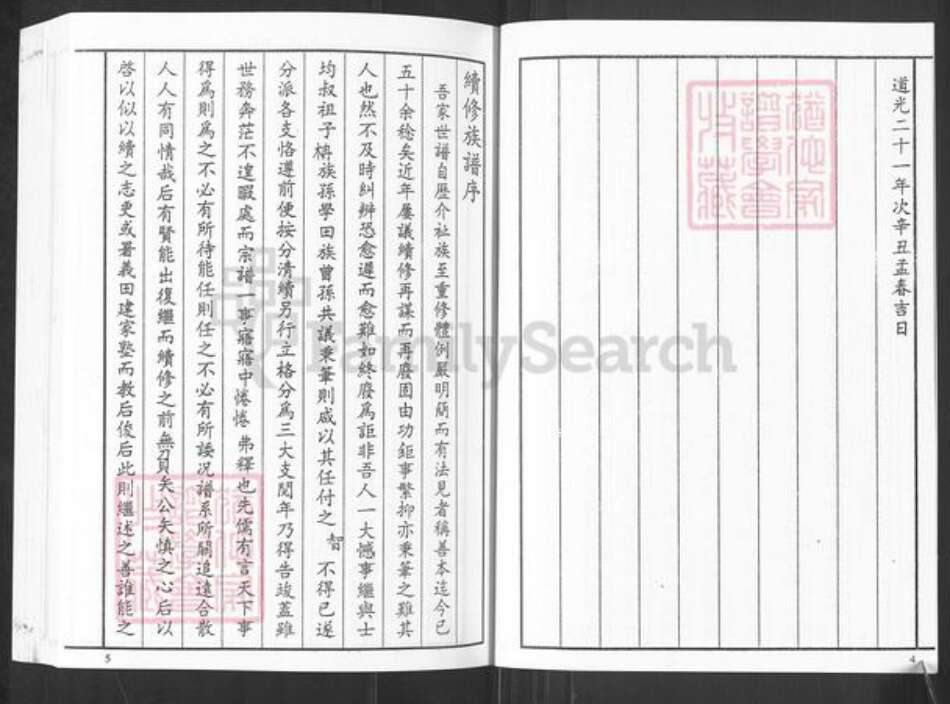 道光二十一年次辛丑孟春吉日
4
續修族譜序
吾家世譜自歷介祉族至重修體例嚴明簡而有法見者稱善本迄今已
五十余稔矣近年屢議續修再謀而再廢固由功鉅事繁抑亦秉筆之難其
人也然不及時糾辦恐愈遲而愈難如終廢為詎非吾人一大憾事繼與士
均叔祖子樹族孫學田族曾孫共議秉筆則咸以其任付之 智 不得已遂
分派各支恪遵前便按分清續另行立格分為三大支閱年乃得告竣蓋雖
世務奔茫不遑暇處而宗譜一事寤寐中惓惓弗釋也先儒有言天下事
得為則為之不必有所待能任則任之不必有所諉況譜系所關追遠合散
人人有同情哉后有賢能出復繼而續修之前無負矢公矢慎之心后以
啓以似以續之志更或署義田建家塾而教后俊后此則繼述之善誰能之
5
FamilySearch